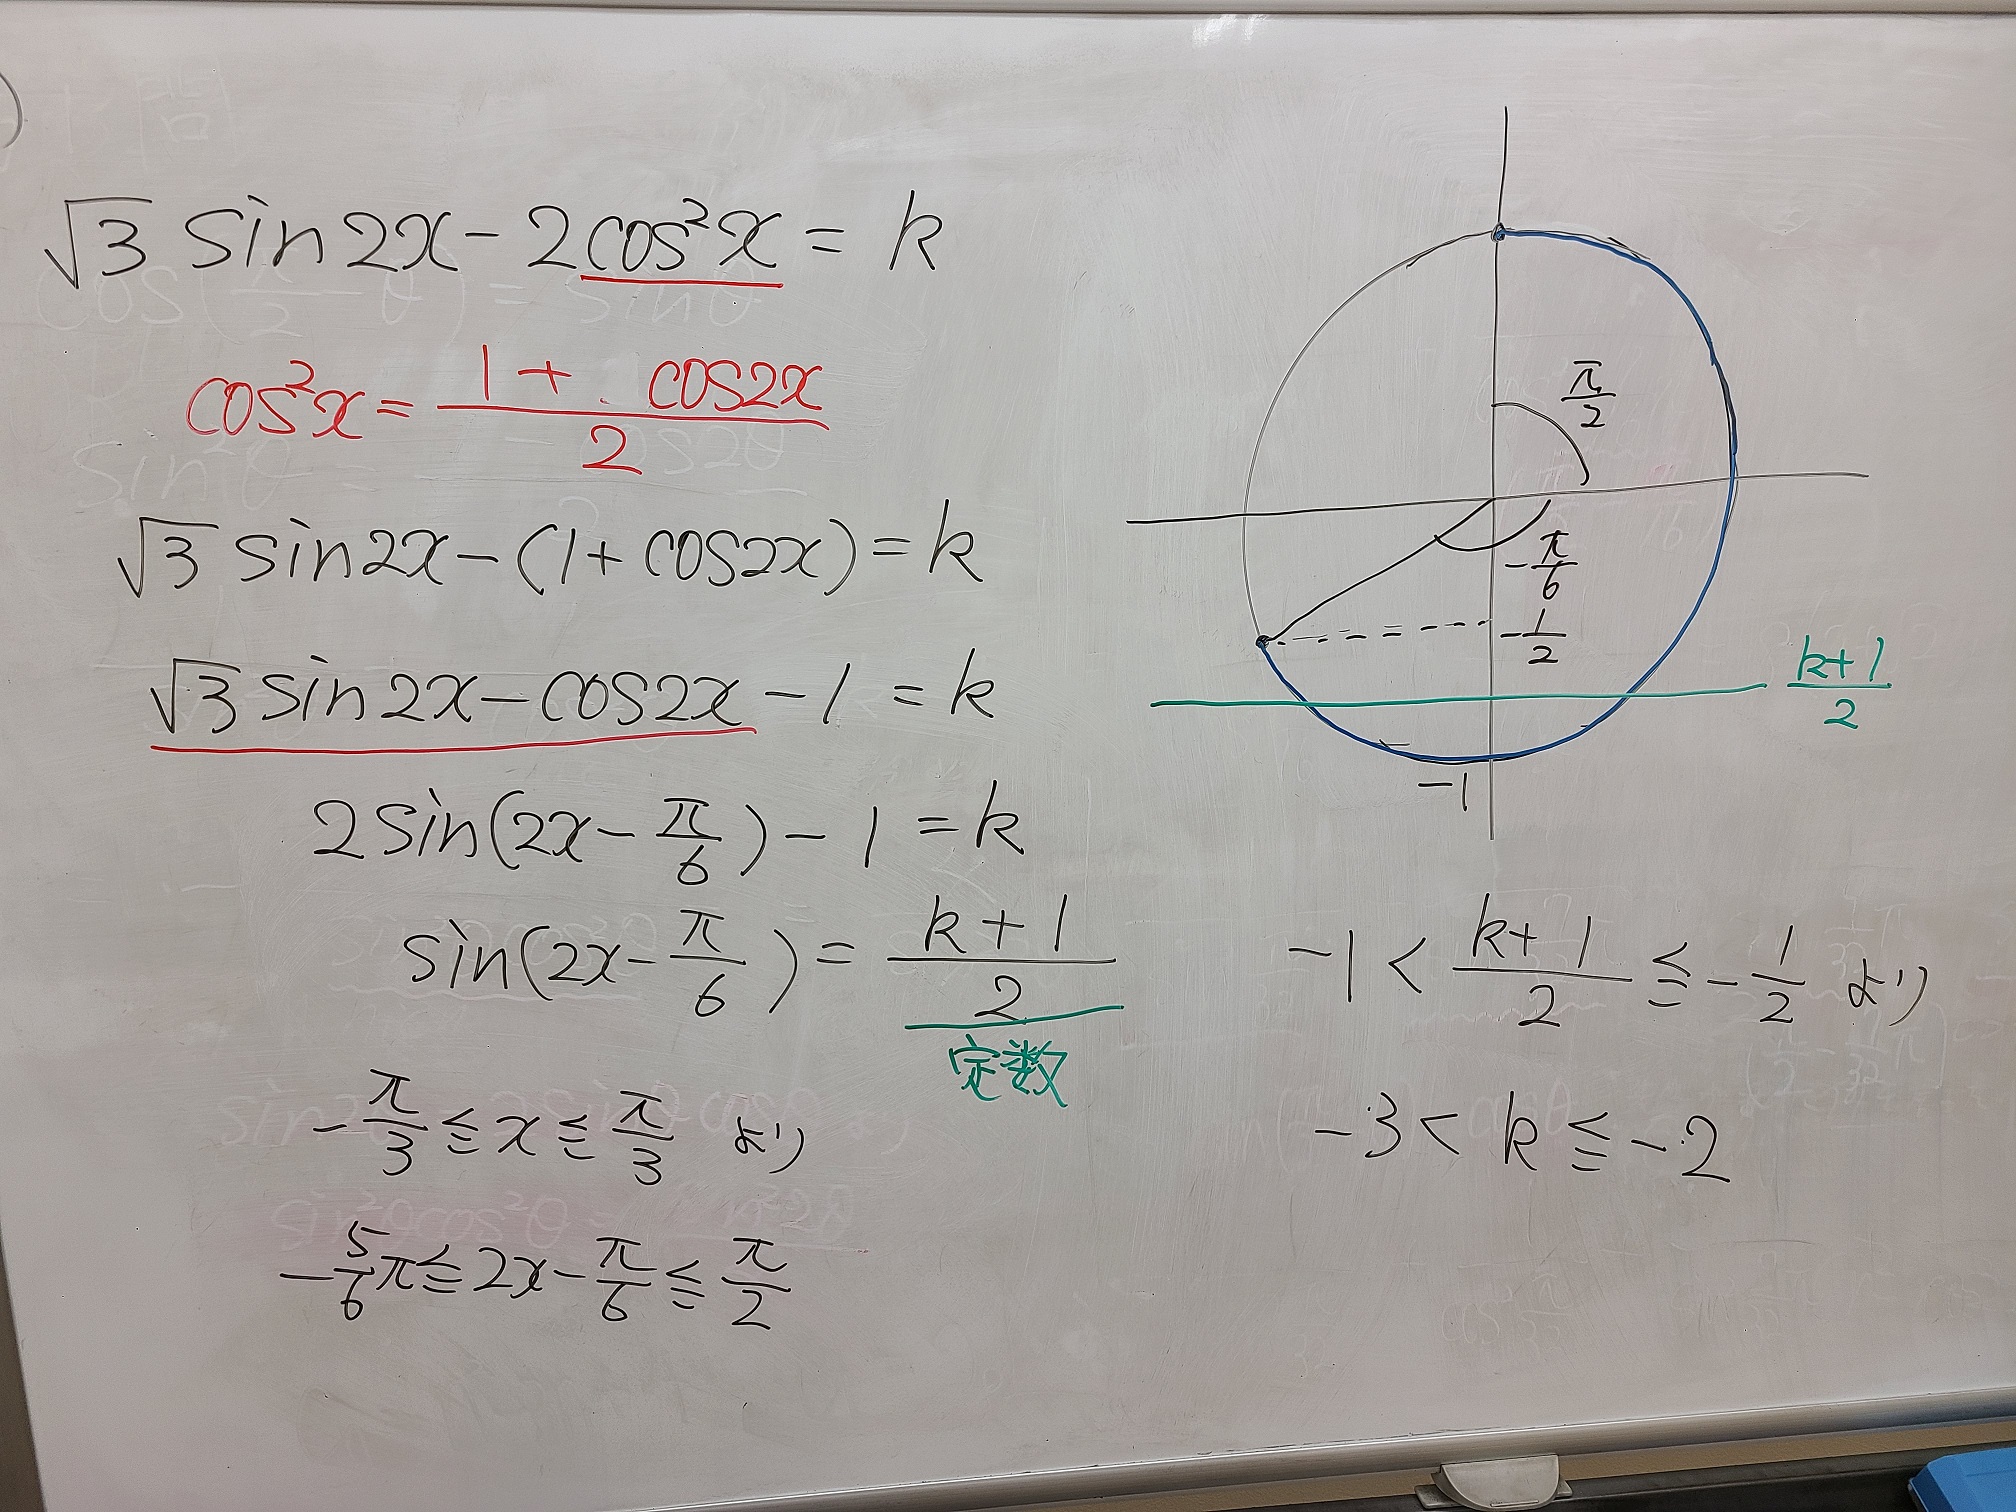 √3 sin2x - 2cos²x = k
cos²x = (1 + cos2x)/2
√3 sin2x - (1 + cos2x) = k
√3 sin2x - cos2x - 1 = k
2sin(2x - π/6) - 1 = k
sin(2x - π/6) = (k+1)/2
定数
-π/3 ≦ x ≦ π/3 より
-5/6π ≦ 2x - π/6 ≦ π/2
π/2
-π/6
-1/2
(k+1)/2
-1
-1 < (k+1)/2 ≦ -1/2 より
-3 < k ≦ -2